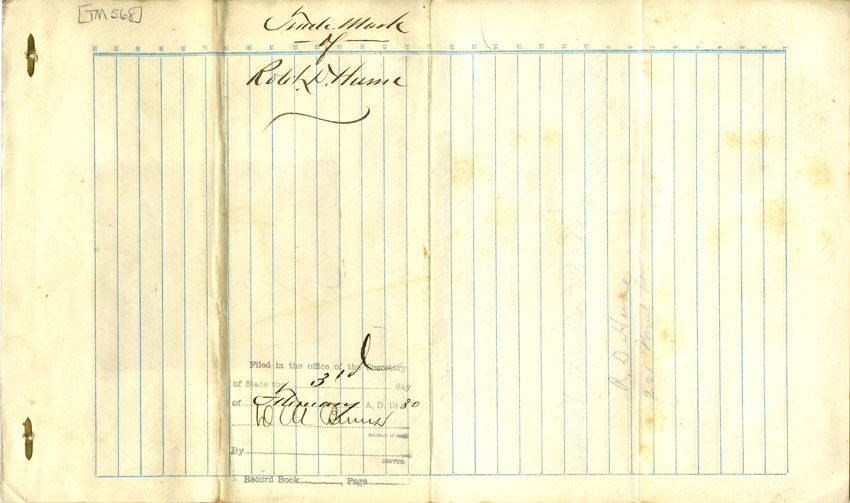 [TM 568]
Trade Mark
of
Robt. D. Hume
Filed in the office of the Secretary
of State the 3rd day
of February A, D. 1880
D M Burns
Secretary of State
By
DEPUTY.
Record Book , Page
R. D. Hume